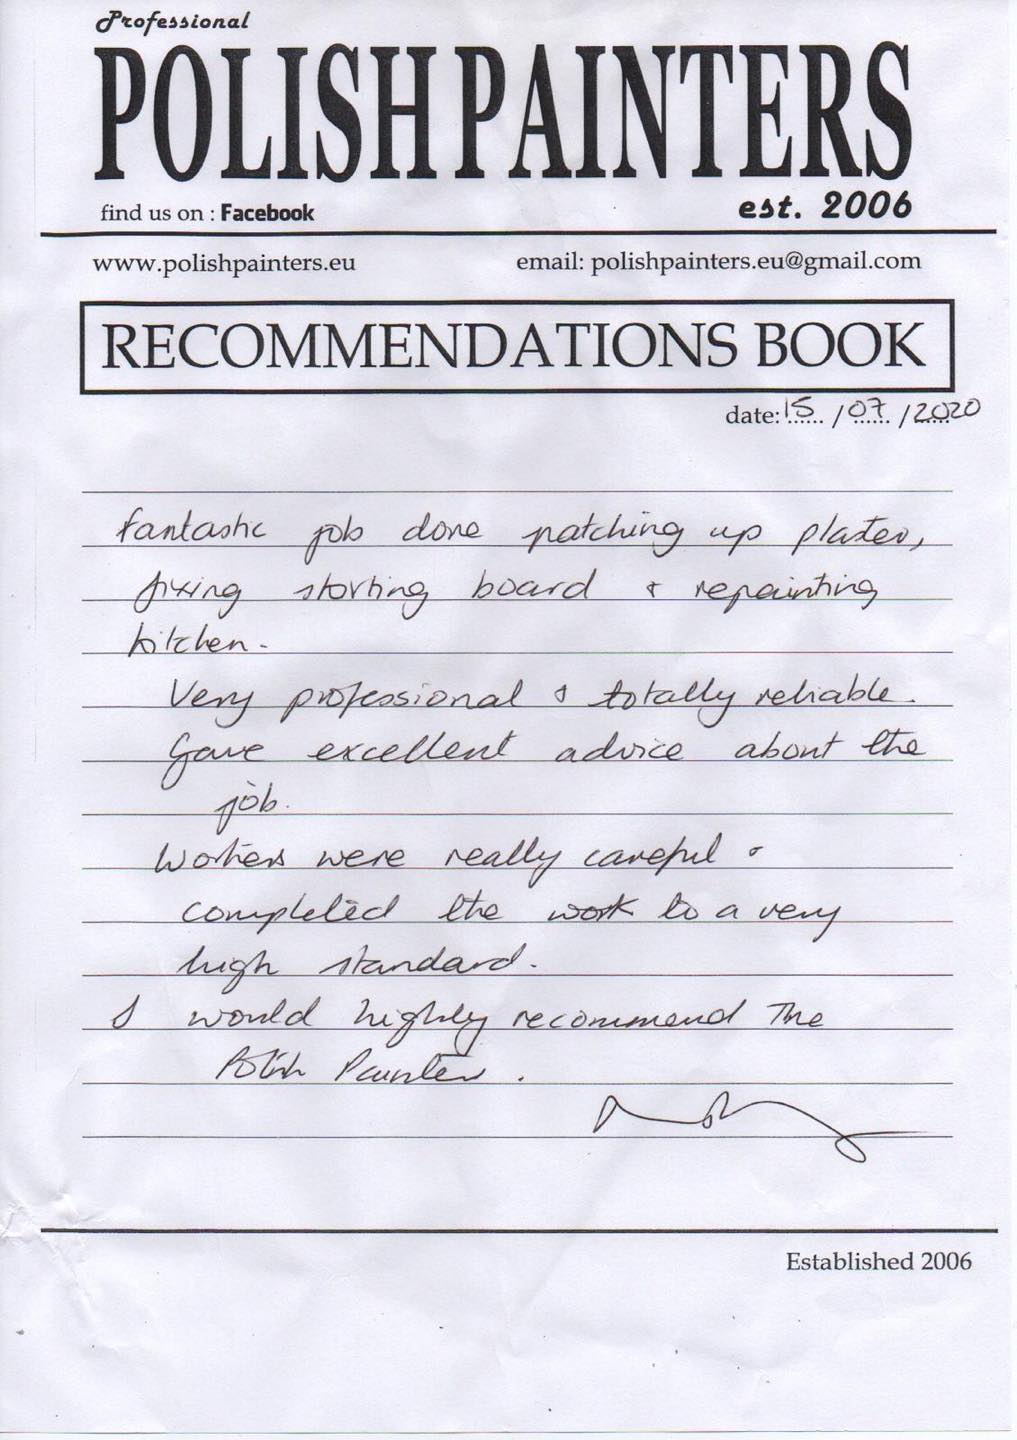 Professional
POLISH PAINTERS
find us on : Facebook
est. 2006
www.polishpainters.eu
email: polishpainters.eu@gmail.com
RECOMMENDATIONS BOOK
date: 15 / 07 / 2020
Fantastic job done patching up plaster,
fixing skirting board & repainting
kitchen.
Very professional & totally reliable.
Gave excellent advice about the
job.
Workers were really careful &
completed the work to a very
high standard.
I would highly recommend The
Polish Painters.
Established 2006